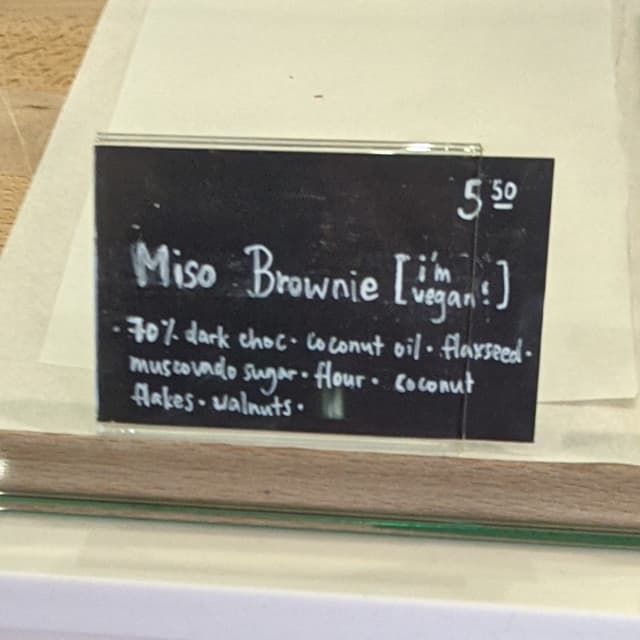 5 50
Miso Brownie [i'm vegan!]
· 70% dark choc · coconut oil · flaxseed ·
muscovado sugar · flour · coconut
flakes · walnuts ·